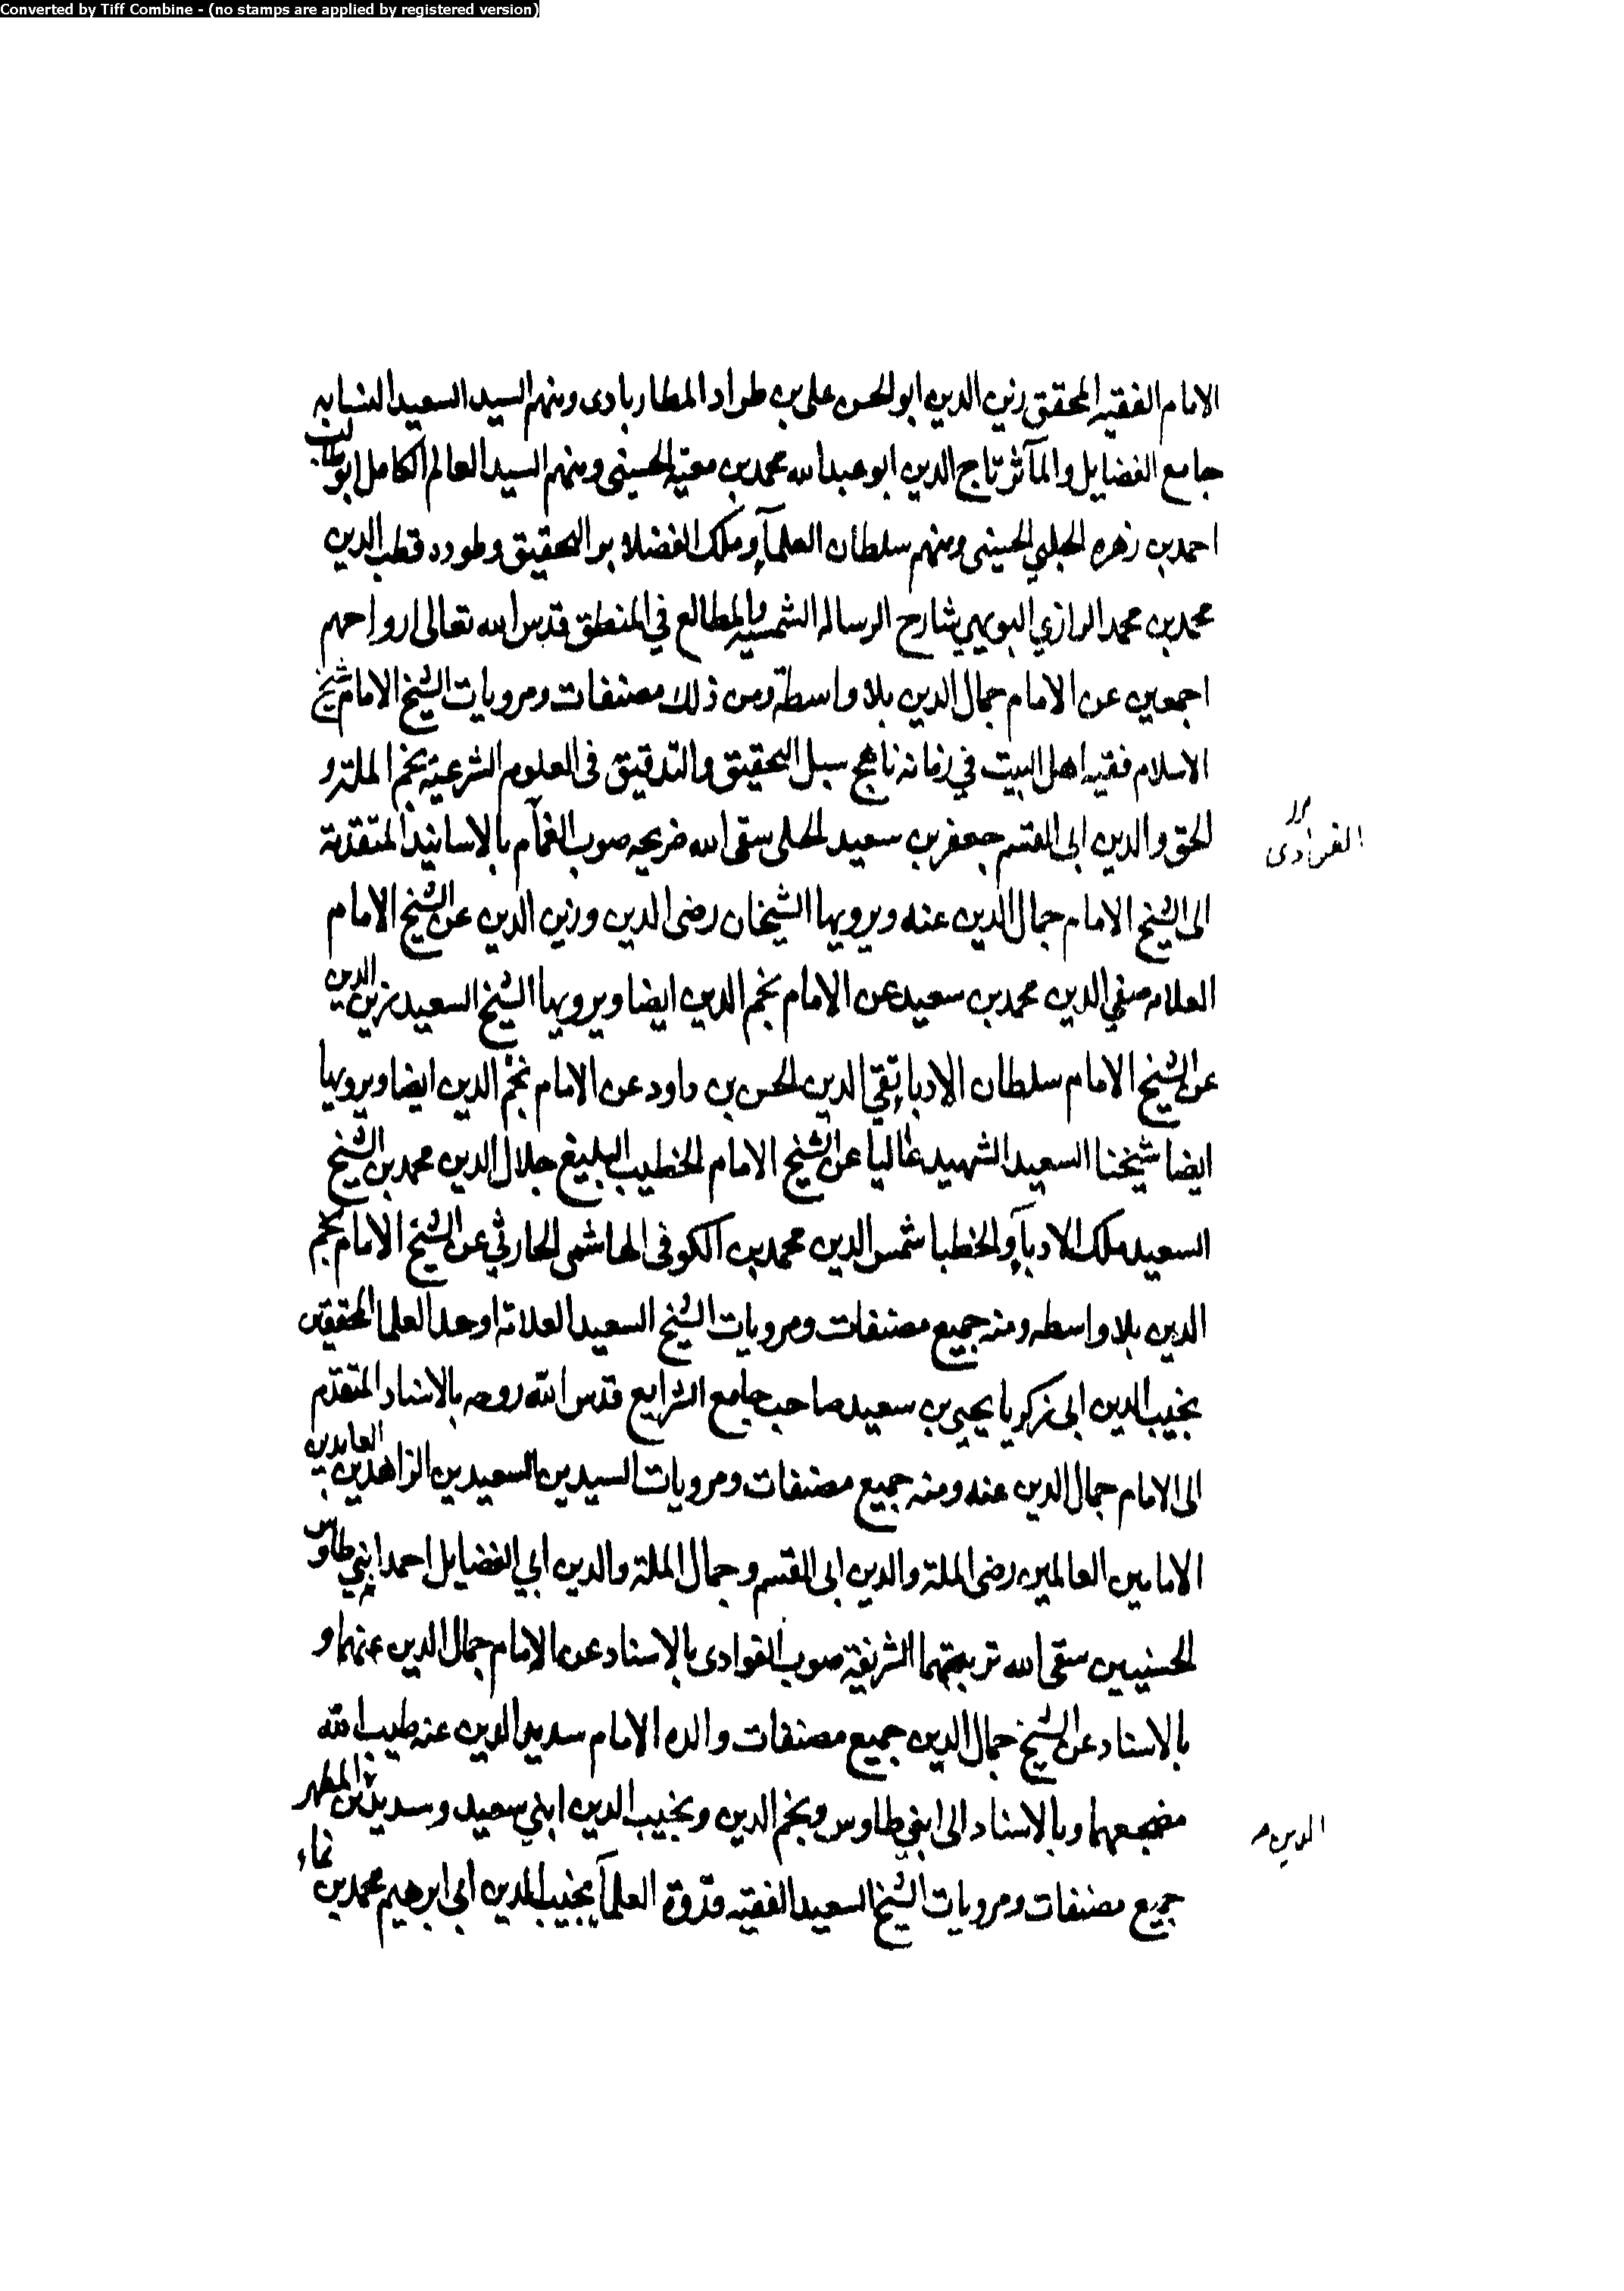 Converted by Tiff Combine - (no stamps are applied by registered version)
الامام الفقيه المحقق زين الدين ابو الحسن على بن طراد المطاربادى ومنهم السيد السعيد النسابه
جامع الفضايل والمآثر تاج الدين ابو عبد الله محمد بن معية الحسينى ومنهم السيد العالم الكامل ابو طالب
احمد بن زهره الحلبي الحسينى ومنهم سلطان العلمآء وملك الفضلاء بحر التحقيق وطوده قطب الدين
محمد بن محمد الرازي البويهي شارح الرساله الشمسيه والمطالع في المنطق قدس الله تعالى ارواحهم
اجمعين عن الامام جمال الدين بلا واسطة ومن ذلك مصنفات ومرويات الشيخ الامام شيخ
الاسلام فقيه اهل البيت في زمانه ناهج سبل التحقيق والتدقيق فى العلوم الشرعية نجم الملة و
الحق والدين ابى القسم جعفر بن سعيد الحلى سقى الله ضريحه صوب الغمآم بالاسانيد المتقدمة
الى الشيخ الامام جمال الدين عنه ويرويها الشيخان رضى الدين وزين الدين عن الشيخ الامام
العلامه صفي الدين محمد بن سعيد عن الامام نجم الدين ايضا ويرويها الشيخ السعيد زين الدين
عن الشيخ الامام سلطان الادباء تقي الدين الحسن بن داود عن الامام نجم الدين ايضا ويرويها
ايضا شيخنا السعيد الشهيد عاليا عن الشيخ الامام الخطيب البليغ جلال الدين محمد بن الشيخ
السعيد ملك الادبآء والخطبا شمس الدين محمد بن الكوفى الهاشمى الحارثي عن الشيخ الامام نجم
الدين بلا واسطه ومنه جميع مصنفات ومرويات الشيخ السعيد العلامة اوحد العلما المحققين
نجيب الدين ابى زكريا يحيى بن سعيد صاحب جامع الشرايع قدس الله روحه بالاسناد المتقدم
الى الامام جمال الدين عنه ومنه جميع مصنفات ومرويات السيدين السعيدين الزاهدين العابدين
الامامين العالمين رضى الملة والدين ابى القسم وجمال الملة والدين ابي الفضايل احمد ابني طاوس
الحسنيين سقى الله تربتهما الشريفة صوب الغوادى بالاسناد عن الامام جمال الدين عنهما و
بالاسناد عن الشيخ جمال الدين جميع مصنفات والده الامام سديد الدين عنه طيب الله
مضجعهما وبالاسناد الى ابني طاوس ونجم الدين ونجيب الدين ابني سعيد وسديد بن المطهر
جميع مصنفات ومرويات الشيخ السعيد الفقيه قدوة العلمآء نجيب الدين أبى ابرهيم محمد بن نماء
الدين